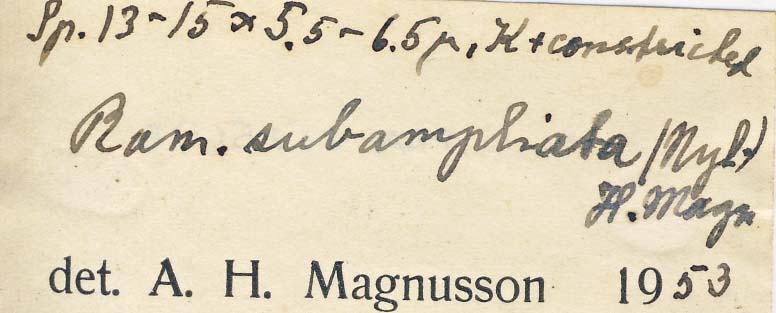 Sp. 13-15 x 5.5-6.5 µ, K + constricted
Ram. subampliata (Nyl.)
H. Magn
det. A. H. Magnusson 1953